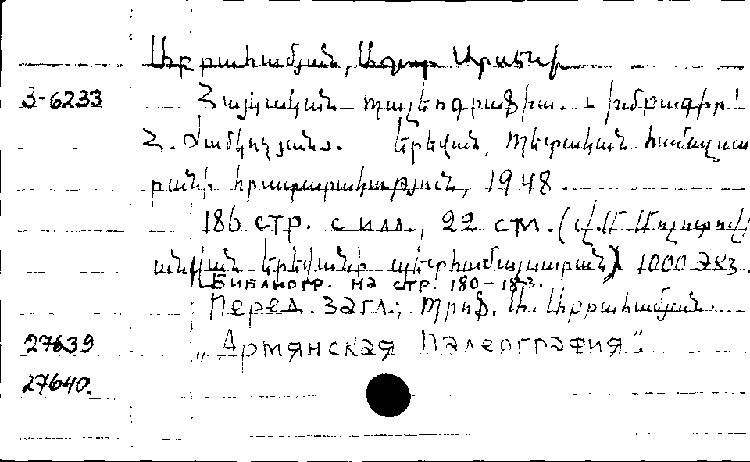 Աբրահամյան, Աշոտ Արսենի
3-6233 Հայկական պալեոգրաֆիա. - խմբագիր՝
Հ. Ժամկոչյան. Երեվան, Պետական համալսա
րանի հրատարակություն, 1948.
186 стр. с илл., 22 см. (Վ.Մ. Մոլոտովի
անվան Երեվանի պետհամալսարան) 1000 экз.
Библиогр. на стр. 180-183.
Перед. загл.: պրոֆ. Ա. Աբրահամյան
27639 „Армянская Палеография"
27640.